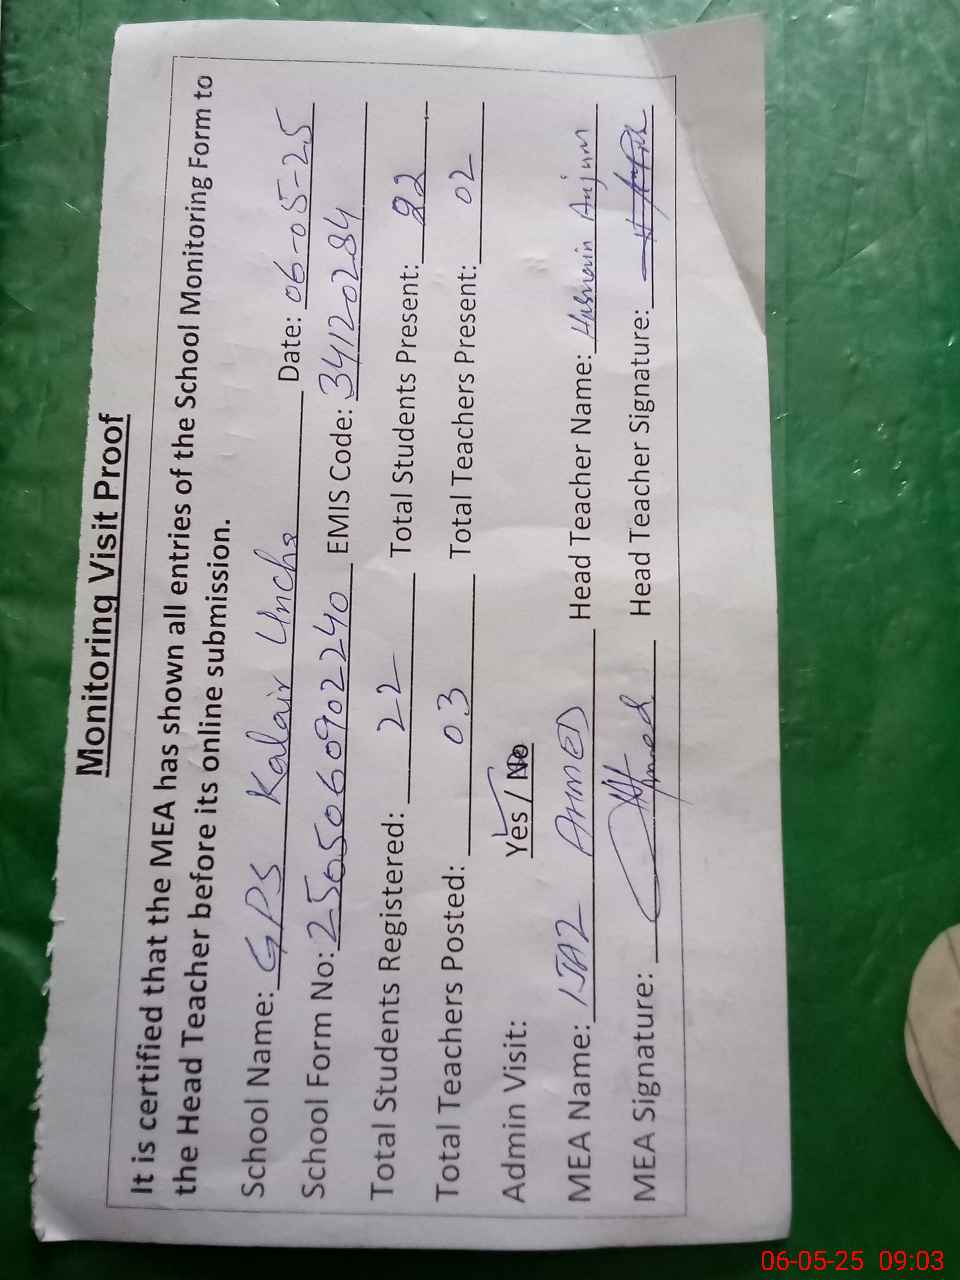 Monitoring Visit Proof
It is certified that the MEA has shown all entries of the School Monitoring Form to
the Head Teacher before its online submission.
School Name: GPS Kalair Uncha Date: 06-05-25
School Form No: 2505060902240 EMIS Code: 34120284
Total Students Registered: 22 Total Students Present: 22
Total Teachers Posted: 03 Total Teachers Present: 02
Admin Visit: Yes / No
MEA Name: IJAZ AHMED Head Teacher Name: Hasnain Anjum
MEA Signature: Head Teacher Signature:
06-05-25 09:03